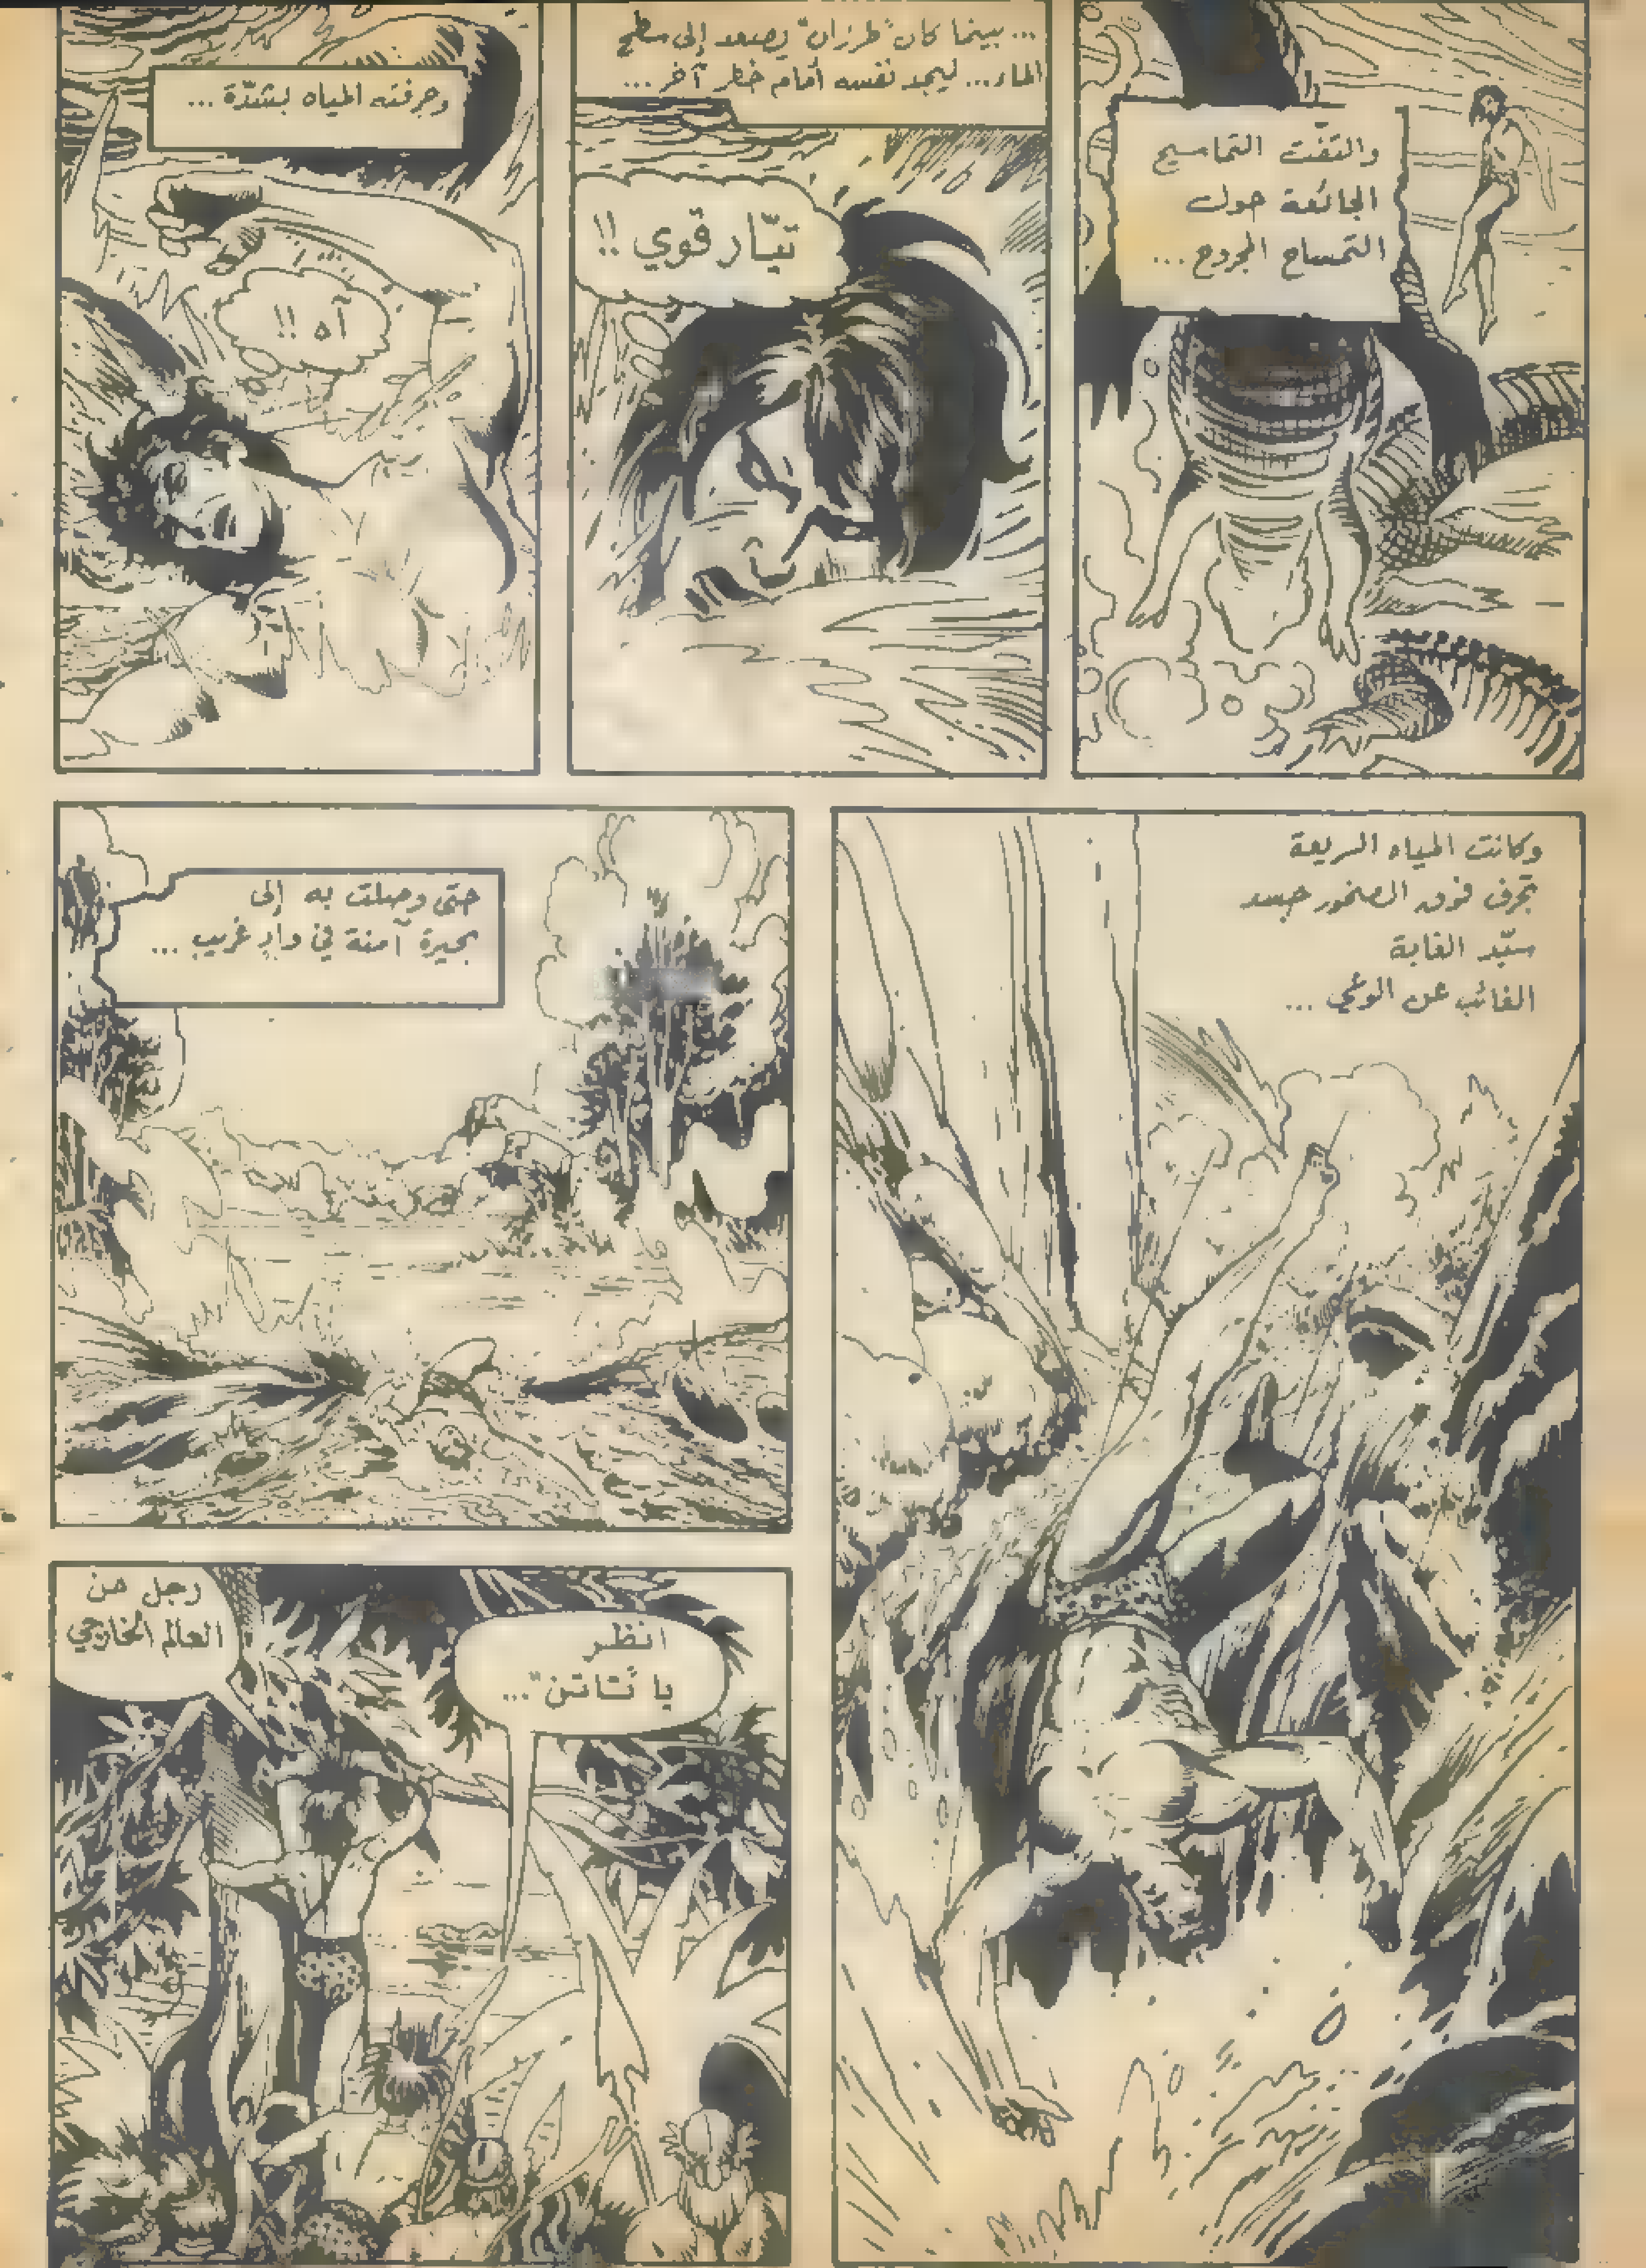 والتفّت التماسيح
الجائعة حول
التمساح المجروح...
... بينما كان "طرزان" يصعد إلى سطح
الماء... ليجد نفسه أمام خطر آخر...
تيّار قوي !!
وجرفته المياه بشدّة ...
آه !!
وكانت المياه السريعة
تجرف فوق الصخور جسد
سيّد الغابة
الغائب عن الوعي ...
حتى وصلت به إلى
بحيرة آمنة في وادٍ غريب ...
انظر
يا "تاتن" ...
رجل من
العالم الخارجي